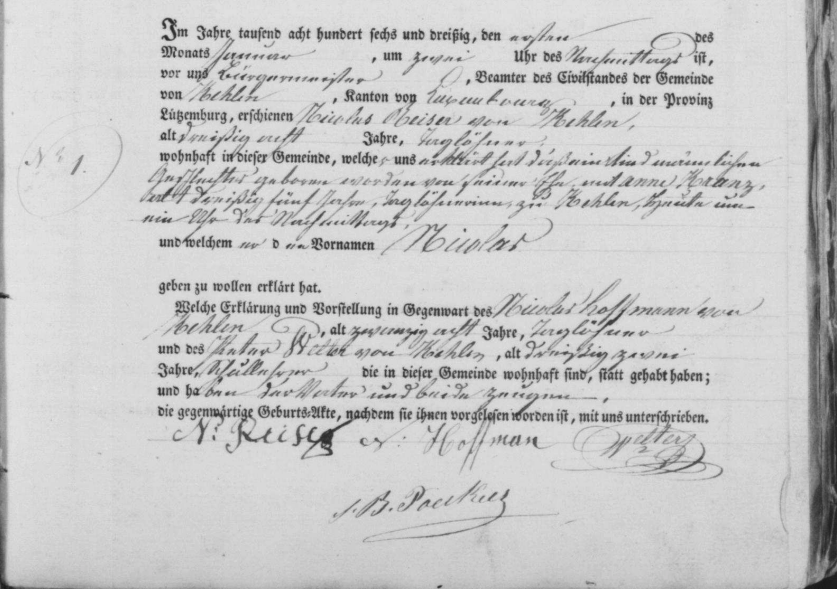 Im Jahre tausend acht hundert sechs und dreißig, den ersten des
Monats Januar, um zwei Uhr des Nachmittags ist,
vor uns Bürgermeister, Beamter des Civilstandes der Gemeinde
von Kehlen, Kanton von Luxembourg, in der Provinz
Lützemburg, erschienen Nicolas Reiser von Kehlen,
alt dreißig acht Jahre, Taglöhner,
N° 1.
wohnhaft in dieser Gemeinde, welcher uns erklärt hat daß ein Kind männlichen
Geschlechts geboren worden von seiner Ehe, mit Anne Kranz,
alt dreißig fünf Jahre, Taglöhnerinn, zu Kehlen, heute um
ein Uhr des Nachmittags,
und welchem er den Vornamen Nicolas
geben zu wollen erklärt hat.
Welche Erklärung und Vorstellung in Gegenwart des Nicolas Hoffmann von
Kehlen, alt zwanzig acht Jahre, Taglöhner
und des Peter Welter von Kehlen, alt dreißig zwei
Jahre, Schullehrer die in dieser Gemeinde wohnhaft sind, statt gehabt haben;
und haben der Vater und beide Zeugen,
die gegenwärtige Geburts-Akte, nachdem sie ihnen vorgelesen worden ist, mit uns unterschrieben.
N: Reiser N: Hoffman Welter